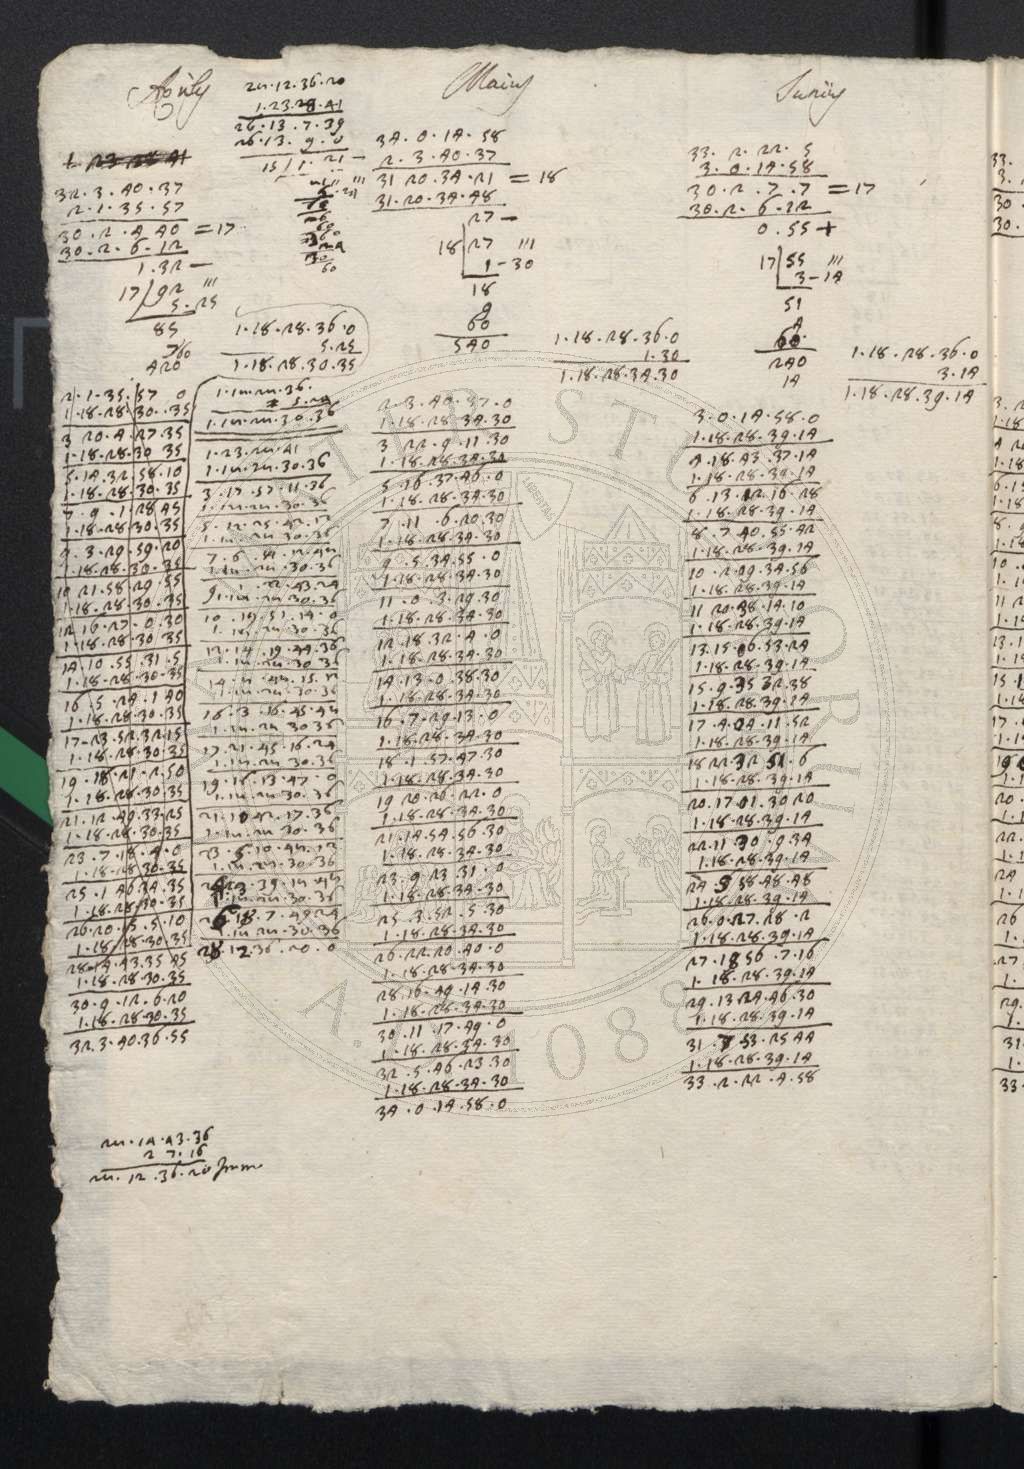 Aprily
28.12.36.20
1.23.28.41
26.13.7.39
26.13.9.0
32.3.40.37
2.1.35.57
30.2.4.40 = 17
30.2.6.12
1.32 —
17 92 '''
5-25
85
7/60
420
1.18.28.36.0
5.25
1.18.28.30.35
2.1.35.57 0
1.18.28.30.35
3 20.4.27.35
1.18.28.30 35
5.14.32.58.10
1.18.28.30.35
7.9.1.28 45
1.18.28.30.35
9.3.29.59.20
1.18.28.30.35
10 21.58.29.55
1.18.28.30.35
12 16.27.0.30
1.18.28.30 35
14.10.55.31.5
1.18.28.30.35
16.5.24.1 40
1.18.28.30.35
17.23.52.32.15
1.18.28.30.35
19.18.21.2.50
1.18.28.30.35
21.12.49.33.25
1.18.28.30.35
23.7.18.4.0
1.18.28 30.35
25.1 46 34.35
1.18.28.30.35
26 20.15.5.10
1.18.28.30.35
28.14.43.35 45
1.18.28.30.35
30.9.12.6.20
1.18.28.30.35
32.3.40.36.55
1.18.28.36.
5.24
1.18.28.30.36
1.23.28.41
1.18.28.30.36
3.17.57.11.36
1.18.28.30.36
5.12.25.42.12
1.18.28.30.36
7.6.54.12.48
1.18.28.30.36
9.1.22.43.24
1.18.28.30.36
10.19.51.14.0
1.18.28.30.36
12.14.19.44.36
1.18.28.30 36
14.8.48.15.12
1.18.28.30.36
16.3.16.45.48
1.18.28.30.36
17.21.45.16.24
1.18.28.30.36
19.16.13.47.0
1.18.28.30.36
21.10 42.17.36
1.18.28.30.36
23.5.10.48.12
1.18.28.30.36
24 23.39.18.48
1.18.28.30.36
26.18.7.49 24
1.18.28.30.36
28.12 36.20.0
28.14.43.36
2 7.16
28.12.36.20
Maiy
34.0.14.58
2.3.40.37
31 20.34.21 = 18
31.20.34.48
27 —
18 27 '''
1-30
18
9
60
540
1.18.28.36.0
1.30
1.18.28.34.30
2.3.40.37.0
1.18.28.34.30
3.22.9.11.30
1.18.28.34.30
5.16.37.46.0
1.18.28.34.30
7.11.6.20.30
1.18.28.34.30
9.5.34.55.0
1.18.28.34.30
11.0.3.29.30
1.18.28.34.30
12.18.32.4.0
1.18.28.34.30
14.13.0.38.30
1.18.28.34.30
16.7.29.13.0
1.18.28.34.30
18.1.57.47.30
1.18.28.34.30
19 20.26.22.0
1.18.28.34.30
21.14.54.56.30
1.18.28.34.30
23.9 23.31.0
1.18.28.34.30
25.3.52.5.30
1.18.28.34.30
26.22.20.40.0
1.18.28.34.30
28.16.49.14.30
1.18.28.34.30
30.11.17.49.0
1.18.28.34.30
32.5.46.23.30
1.18.28.34.30
34.0.14.58.0
Juniy
33.2.22.5
3.0.14.58
30.2.7.7 = 17
30.2.6.12
0.55 +
17 55 '''
3-14
51
4
60
240
14
1.18.28.36.0
3.14
1.18.28.39.14
3.0.14.58.0
1.18.28.39.14
4.18.43.37.14
1.18.28.39.14
6.13.12.16.28
1.18.28.39.14
8.7.40.55.42
1.18.28.39.14
10.2.09.34.56
1.18.28.39.14
11 20.38.14.10
1.18.28.39.14
13.15.06.53.24
1.18.28.39.14
15.9.35 32.38
1.18.28.39.14
17.4.04.11.52
1.18.28.39.14
18 22.32 51.6
1.18.28.39.14
20.17 01.30 20
1.18.28.39.14
22.11.30.9.34
1.18.28.39.14
24 5 58.48.48
1.18.28.39.14
26.0.27.28.2
1.18.28.39.14
27.18 56.7.16
1.18.28.39.14
29.13 24.46.30
1.18.28.39.14
31.7 53.25 44
1.18.28.39.14
33.2.22.4.58